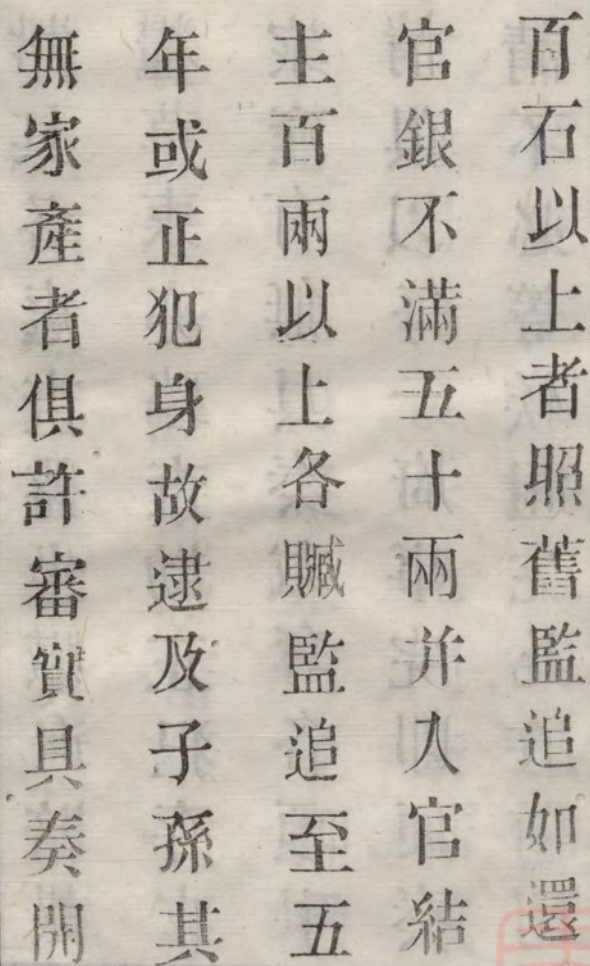 百石以上者照舊監追如還
官銀不滿五十兩并入官結
主百兩以上各贓監追至五
年或正犯身故逮及子孫其
無家產者俱許審實具奏開